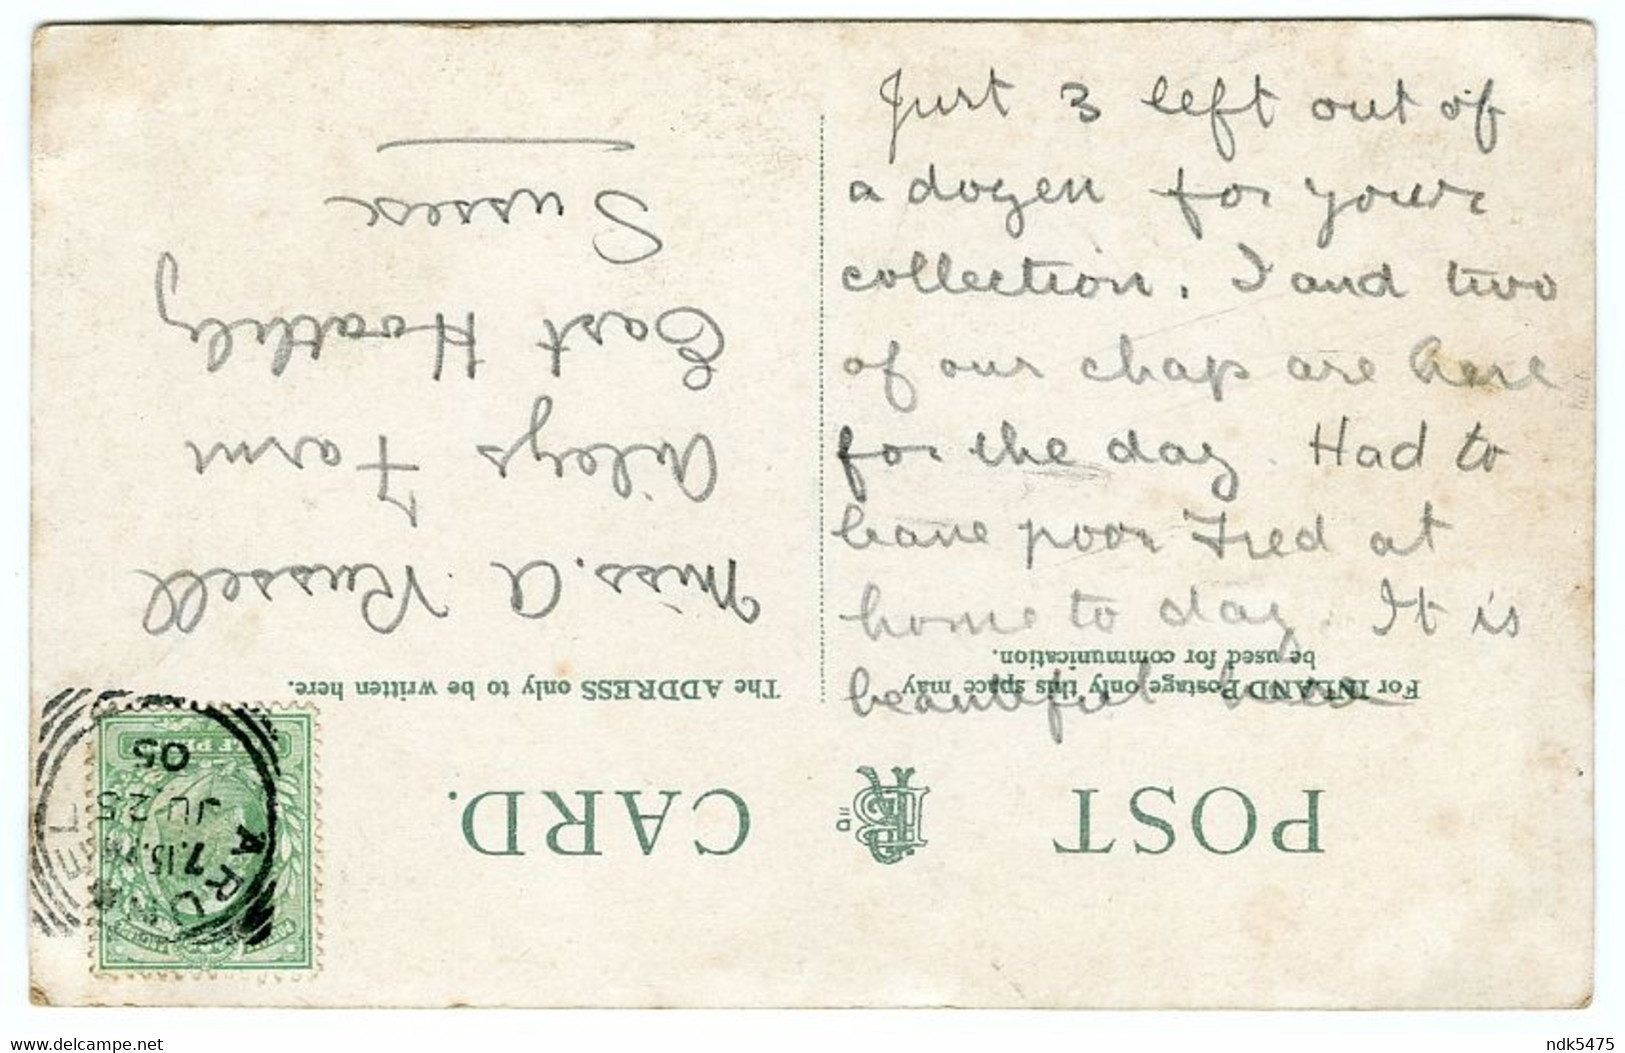 Just 3 left out of
a dozen for your
collection. I and two
of our chap are here
for the day. Had to
leave poor Fred at
home to day. It is
beautiful here
For INLAND Postage only this space may
be used for communication.
The ADDRESS only to be written here.
POST CARD.
Miss. A Russell
Farm
East Hoathly
Sussex
ARUNDEL
7.15.PM
JU 25
05
ndk5475